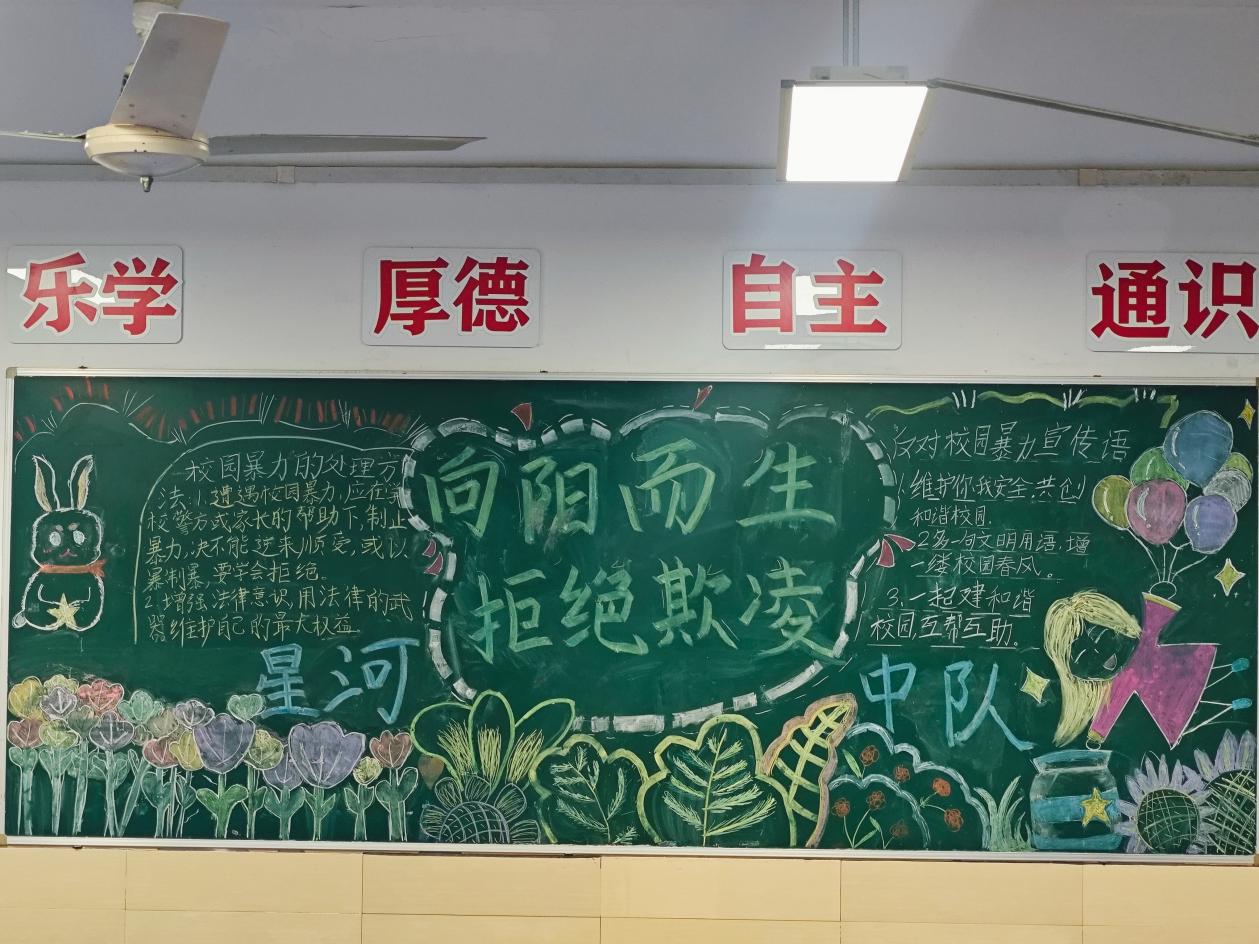 乐学
厚德
自主
通识
校园暴力的处理方
法:1.遭遇校园暴力,应在
校警方或家长的帮助下,制止
暴力,决不能逆来顺受,或以
暴制暴,要学会拒绝。
2.增强法律意识,用法律的武
器维护自己的最大权益
向阳而生
拒绝欺凌
反对校园暴力宣传语
1.维护你我安全,共创
和谐校园.
2.多一句文明用语,增
一缕校园春风。
3.一起建和谐
校园,互帮互助。
星河
中队